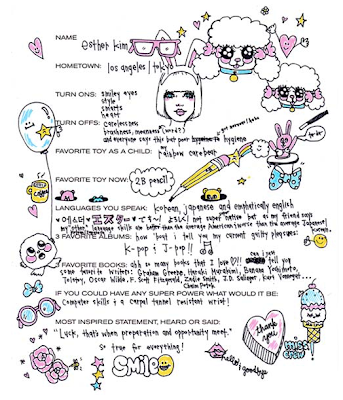 NAME
Esther Kim
HOMETOWN: los angeles / tokyo
TURN ONS: smiley eyes
style
smarts
heart
TURN OFFS: carelessness
brashness, meanness (word?)
and everyone says this but poor hygiene
FAVORITE TOY AS A CHILD: my
rainbow care bear
FAVORITE TOY NOW: 2B pencil
LANGUAGES YOU SPEAK: korean, japanese and emphatically english
not super native but as my friend says
my "other" language skills are better than the average American's
3 FAVORITE ALBUMS: how bout i tell you my current guilty pleasures:
K-pop & J-pop!!
FAVORITE BOOKS: ahh so many books that I love ♡!! i tell you
some favorite writers: Graham Greene, Haruki Murakami, Banana Yoshimoto,
Tolstoy, Oscar Wilde, F. Scott Fitzgerald, Zadie Smith, J.D. Salinger, Kurt Vonnegut,
Chaim Potok
IF YOU COULD HAVE ANY SUPER POWER WHAT WOULD IT BE:
Computer skills & a carpal tunnel resistant wrist!
MOST INSPIRED STATEMENT, HEARD OR SAID:
"Luck, that's when preparation and opportunity meet."
So true for everything!
SMILE
thank you
hello! goodbye
miss crew